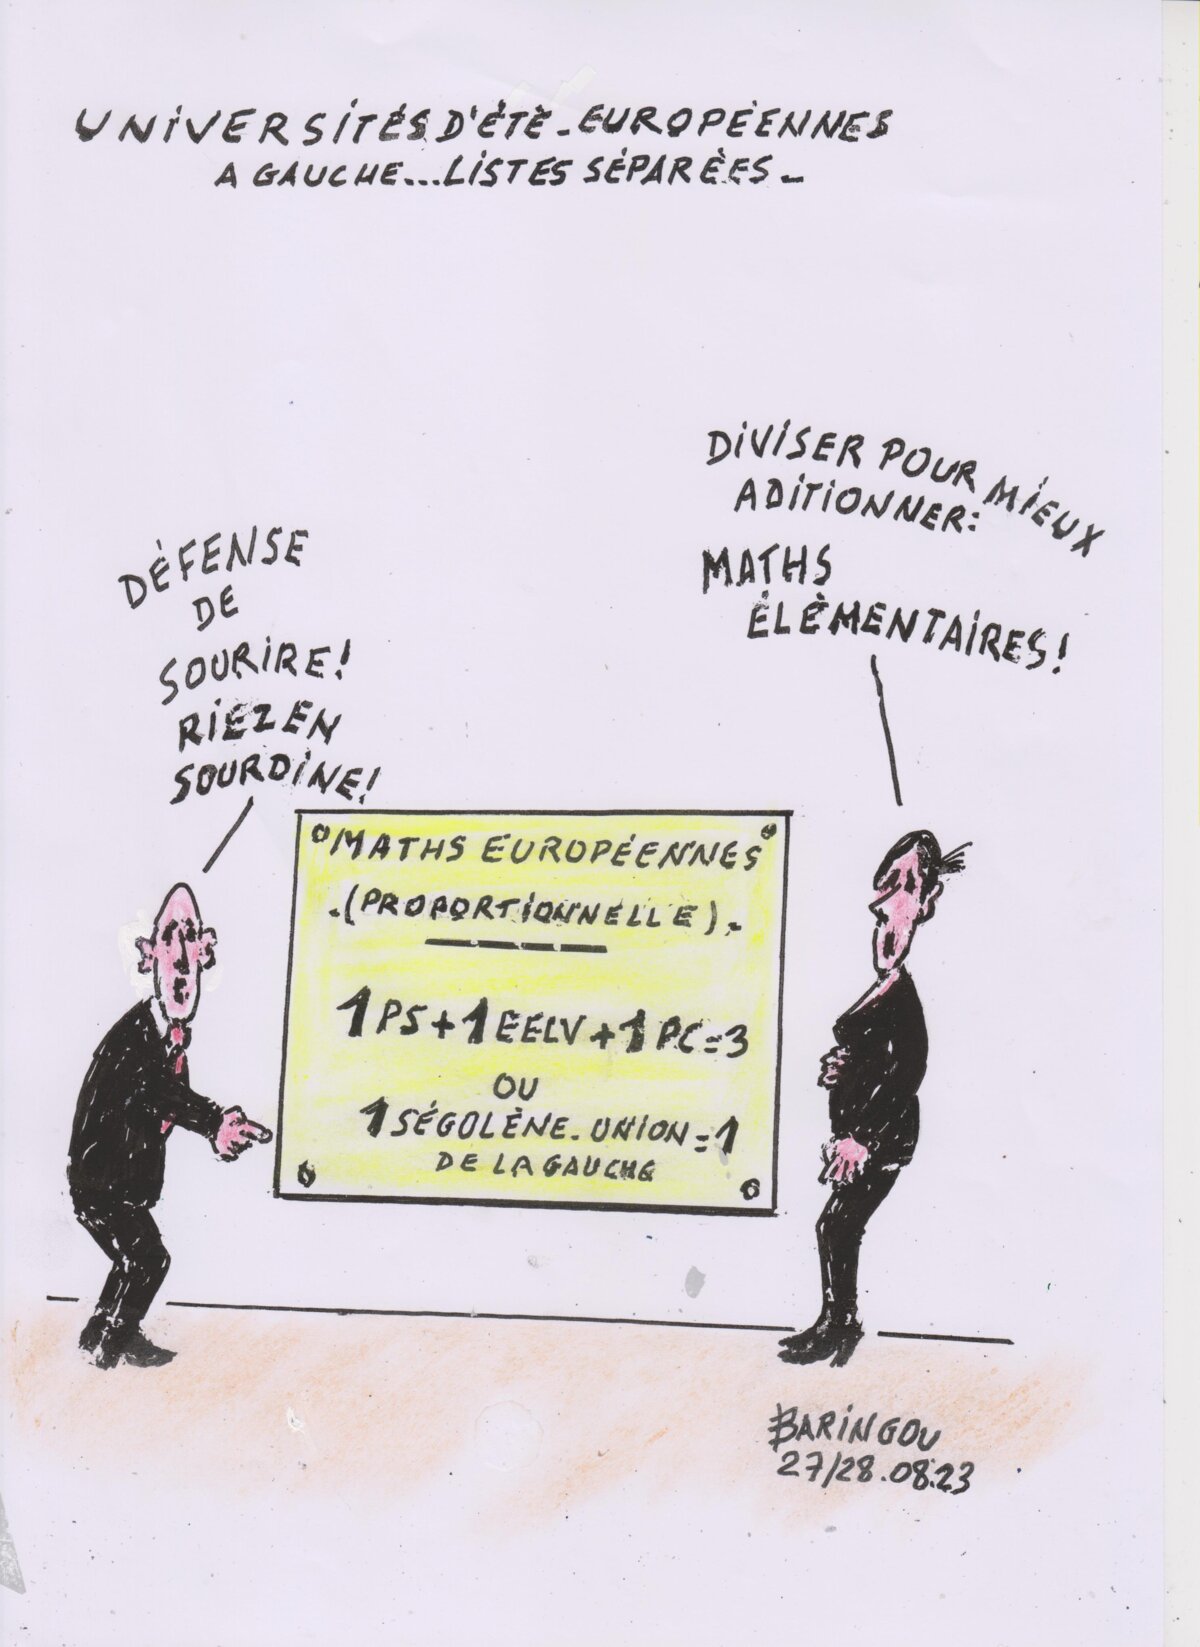 UNIVERSITÉS D'ÉTÉ-EUROPÉENNES
A GAUCHE...LISTES SÉPARÉES-
DIVISER POUR MIEUX
ADITIONNER:
MATHS
ÉLÉMENTAIRES!
DÉFENSE
DE
SOURIRE!
RIEZ EN
SOURDINE!
MATHS EUROPÉENNES
-(PROPORTIONNELLE)-
1PS+1EELV+1PC=3
OU
1SÉGOLÈNE-UNION=1
DE LA GAUCHE
BARINGOU
27/28.08.23